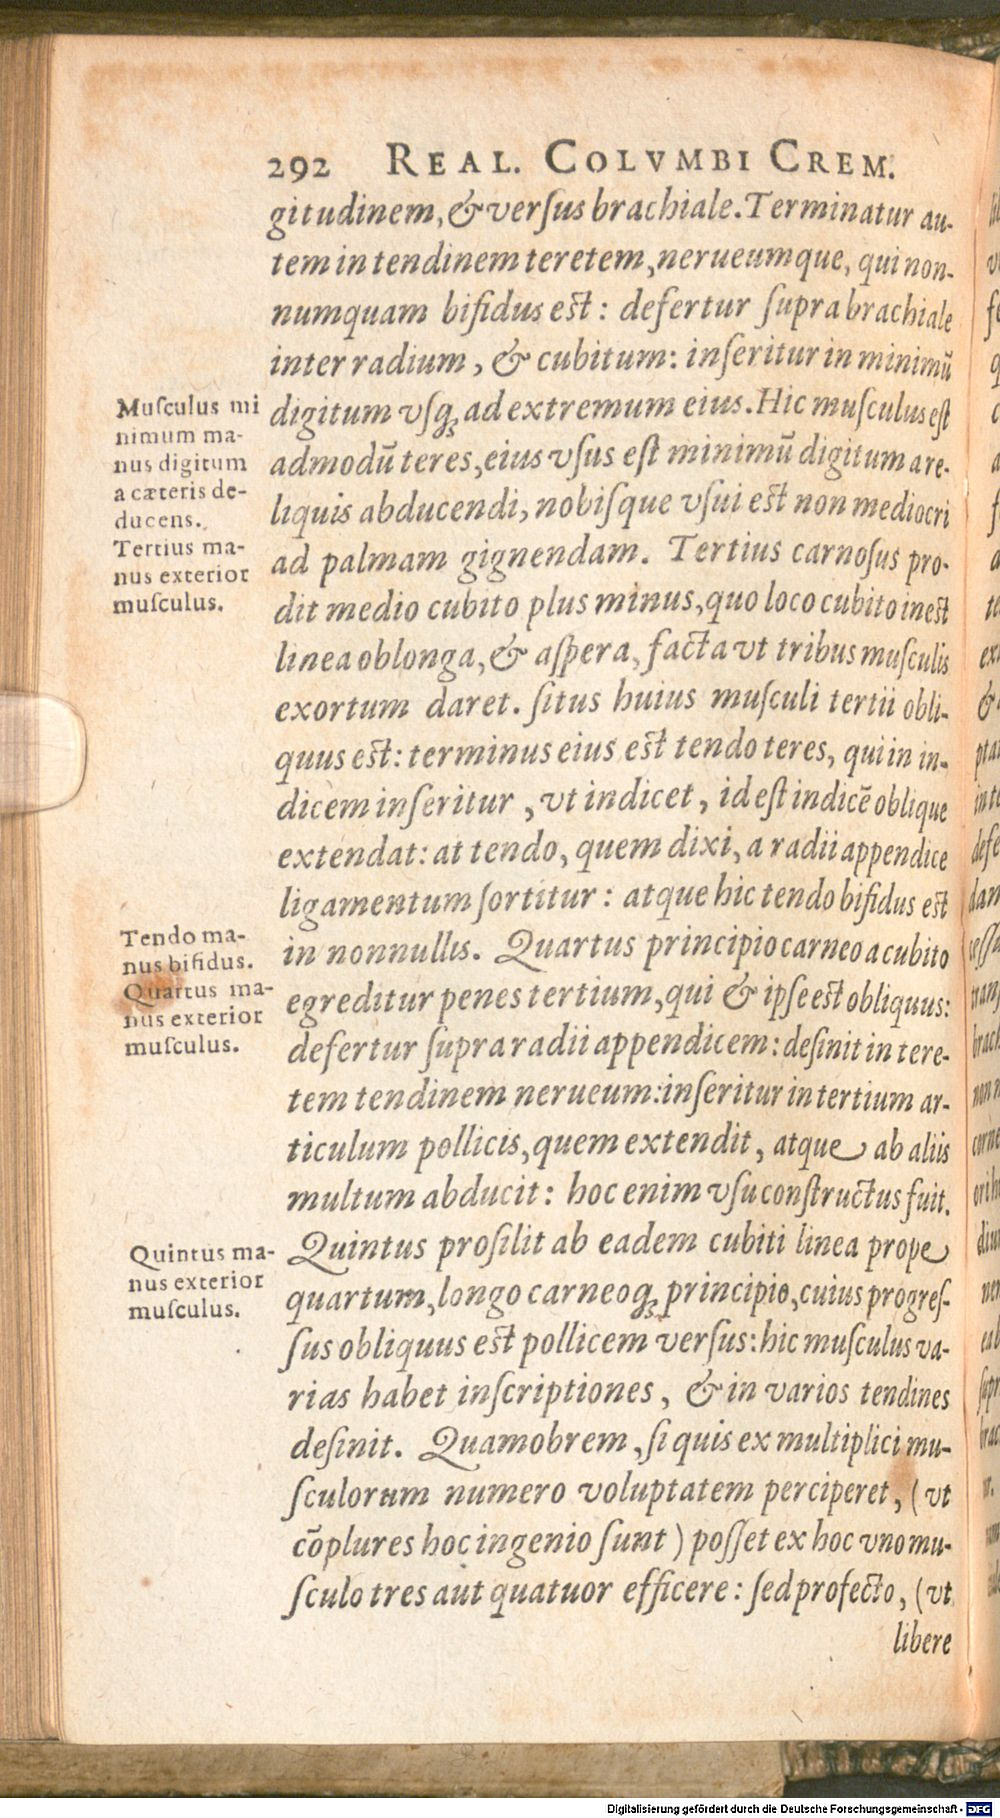 292 REAL. COLVMBI CREM.
gitudinem, & verſus brachiale. Terminatur au-
tem in tendinem teretem, nerueumque, qui non-
numquam bifidus est: defertur ſupra brachiale
inter radium, & cubitum: inſeritur in minimũ
digitum vſq; ad extremum eius. Hic muſculus eſt
admodũ teres, eius vſus eſt minimũ digitum a re-
liquis abducendi, nobiſque vſui est non mediocri
ad palmam gignendam. Tertius carnoſus pro-
dit medio cubito plus minus, quo loco cubito inest
linea oblonga, & aſpera, facta vt tribus muſculis
exortum daret. ſitus huius muſculi tertii obli-
quus est: terminus eius est tendo teres, qui in in-
dicem inſeritur, vt indicet, id eſt indicẽ oblique
extendat: at tendo, quem dixi, a radii appendice
ligamentum ſortitur: atque hic tendo bifidus est
in nonnullis. Quartus principio carneo a cubito
egreditur penes tertium, qui & ipſe est obliquus:
defertur ſupra radii appendicem: deſinit in tere-
tem tendinem nerueum: inſeritur in tertium ar-
ticulum pollicis, quem extendit, atque ab aliis
multum abducit: hoc enim vſu conſtructus fuit.
Quintus proſilit ab eadem cubiti linea prope
quartum, longo carneoq; principio, cuius progreſ-
ſus obliquus est pollicem verſus: hic muſculus va-
rias habet inſcriptiones, & in varios tendines
deſinit. Quamobrem, ſi quis ex multiplici mu-
ſculorum numero voluptatem perciperet, (vt
cõplures hoc ingenio ſunt) poſſet ex hoc vno mu-
ſculo tres aut quatuor efficere: ſed profecto, (vt
libere
Muſculus mi
nimum ma-
nus digitum
a cæteris de-
ducens.
Tertius ma-
nus exterior
muſculus.
Tendo ma-
nus bifidus.
Quartus ma-
nus exterior
muſculus.
Quintus ma-
nus exterior
muſculus.
Digitalisierung gefördert durch die Deutsche Forschungsgemeinschaft - DFG